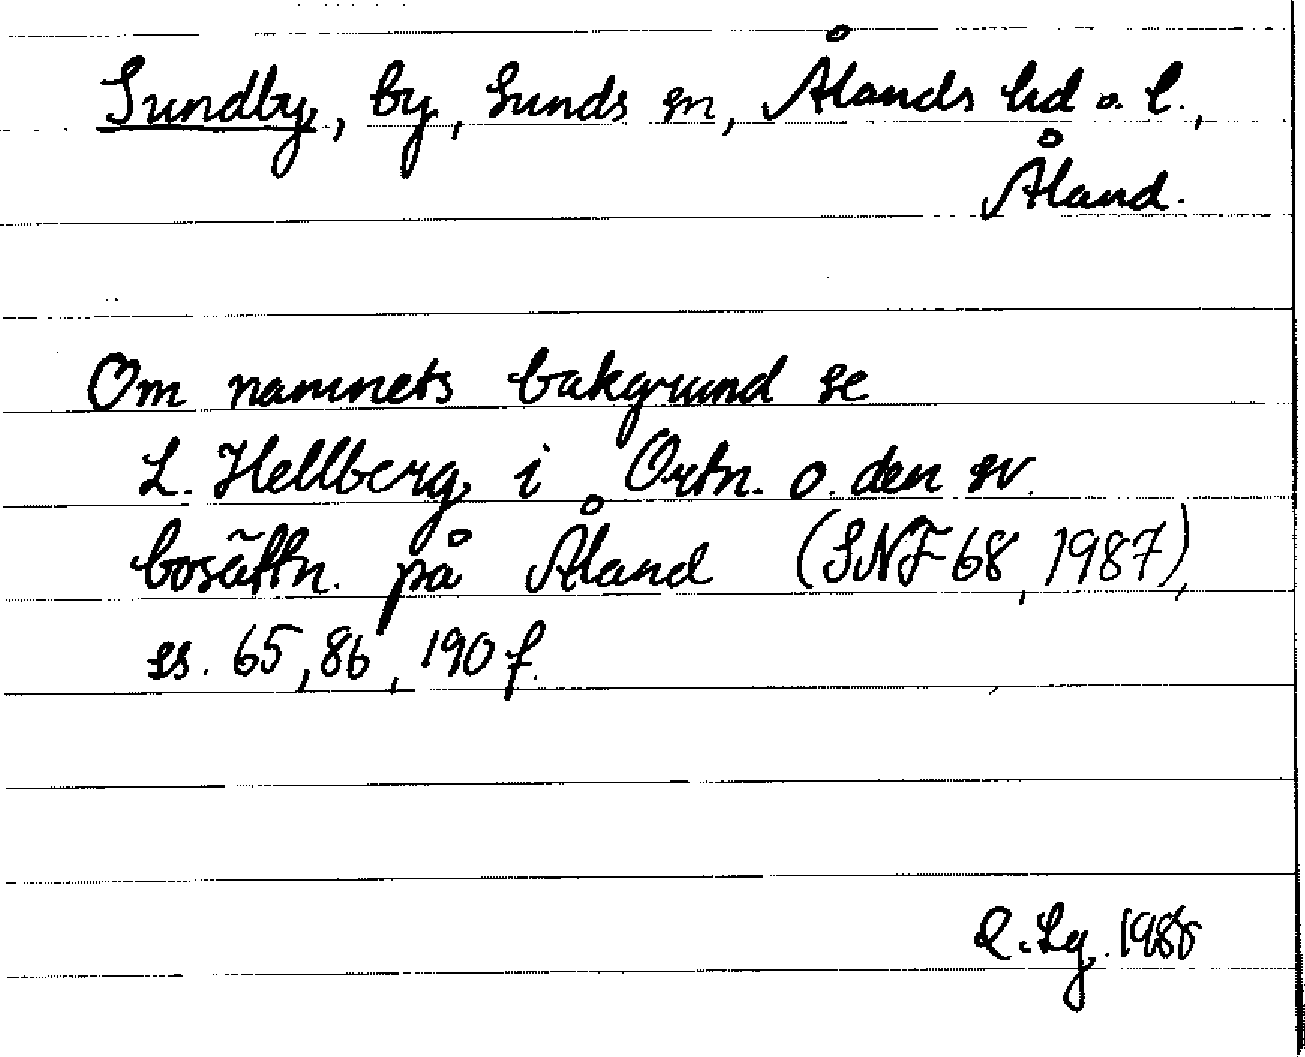 Sundby, by, Sunds sn, Ålands hd o. l.,
Åland.
Om namnets bakgrund se
L. Hellberg i Ortn. o. den sv.
bosättn. på Åland (SNF 68, 1987),
ss. 65, 86, 190 f.